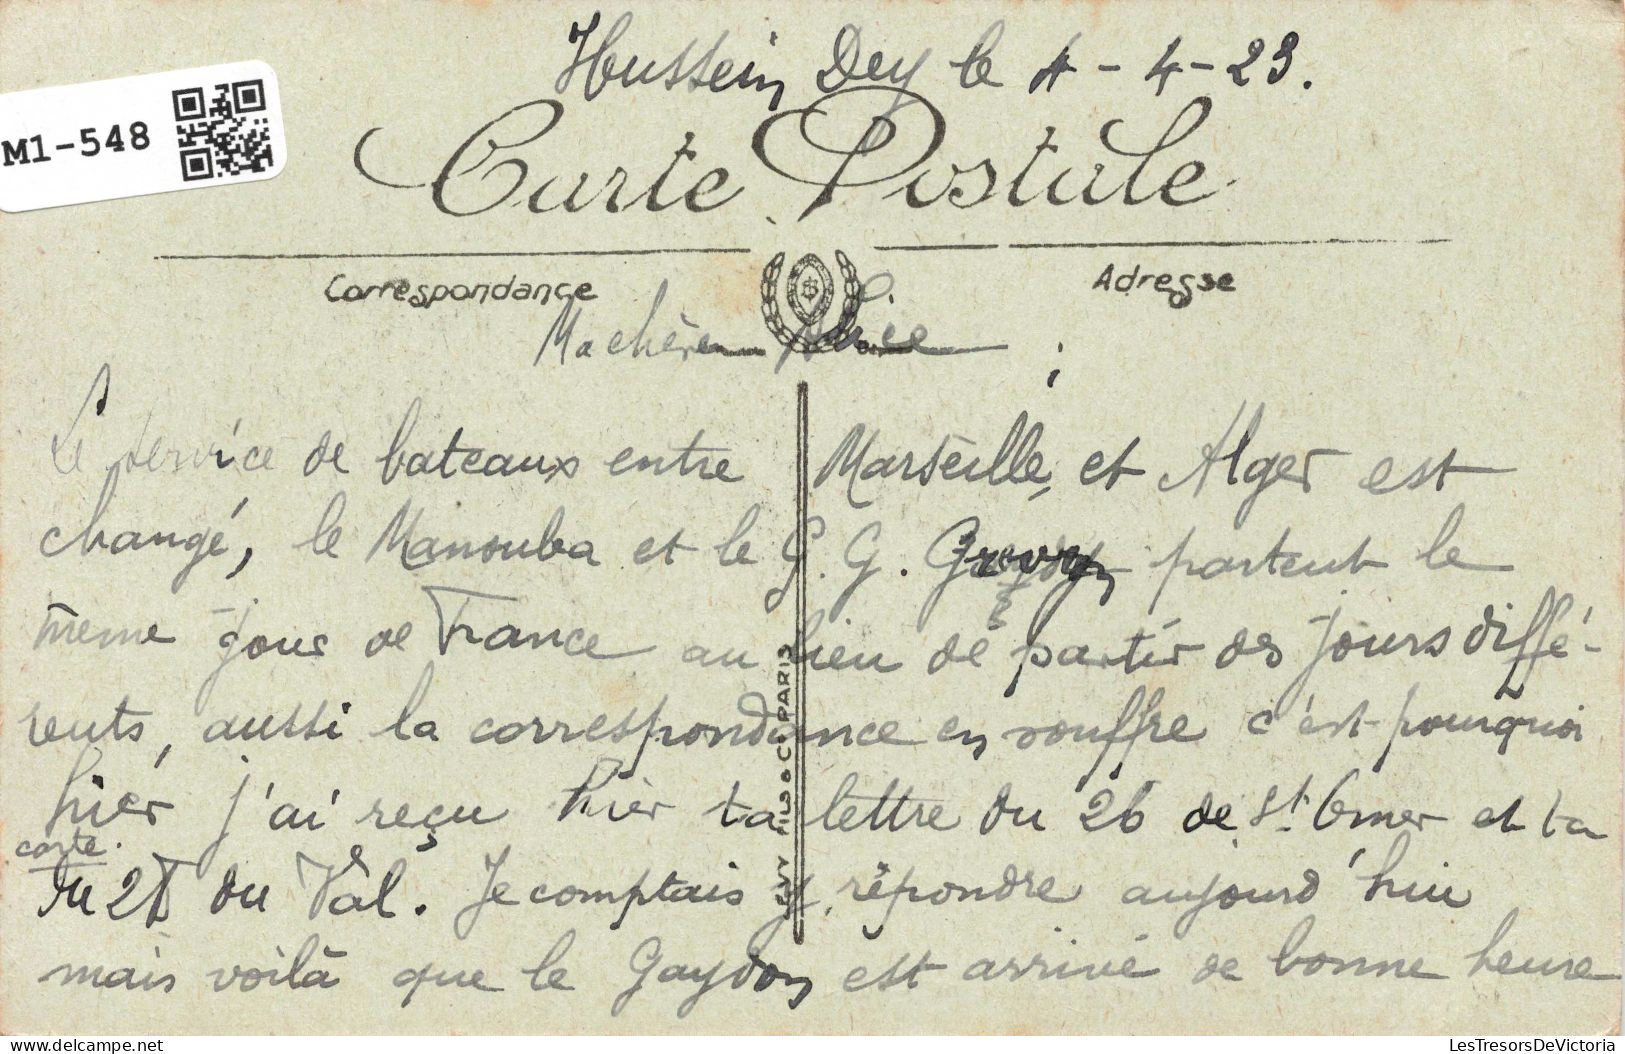 Hussein Dey le 4-4-23.
M1-548
Carte Postale
Correspondance
Adresse
Ma chère Alice
Le service de bateaux entre Marseille, et Alger est
changé, le Manouba et le G. G. partent le
même jour de France au lieu de partir des jours diffé-
rents, aussi la correspondance en souffre c'est pourquoi
hier j'ai reçu hier ta lettre du 26 de St. Omer et ta
carte.
du 27 du Val. Je comptais y répondre aujourd'hui
mais voilà que le Gaydon est arrivé de bonne heure
LEVY FILS & Cie PARIS
LesTresorsDeVictoria
M1-548.jpg
delcampe.net